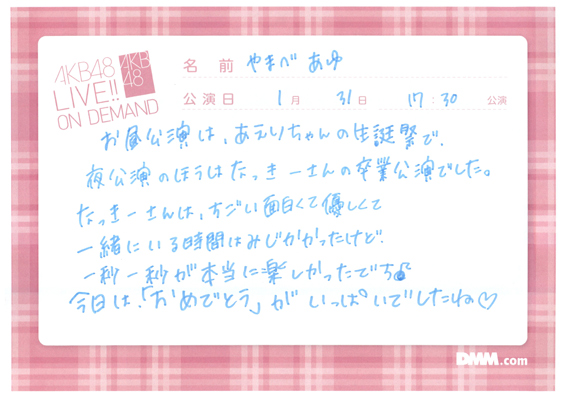 AKB48
LIVE!!
ON DEMAND
AKB
48
名前 やまべ あゆ
公演日 1月 31日 17:30 公演
お昼公演は、あえりちゃんの生誕祭で、
夜公演のほうはなっきーさんの卒業公演でした。
なっきーさんは、すごい面白くて優しくて
一緒にいる時間はみじかかったけど、
一秒一秒が本当に楽しかったです♪
今日は、「おめでとう」がいっぱいでしたね♡
DMM.com